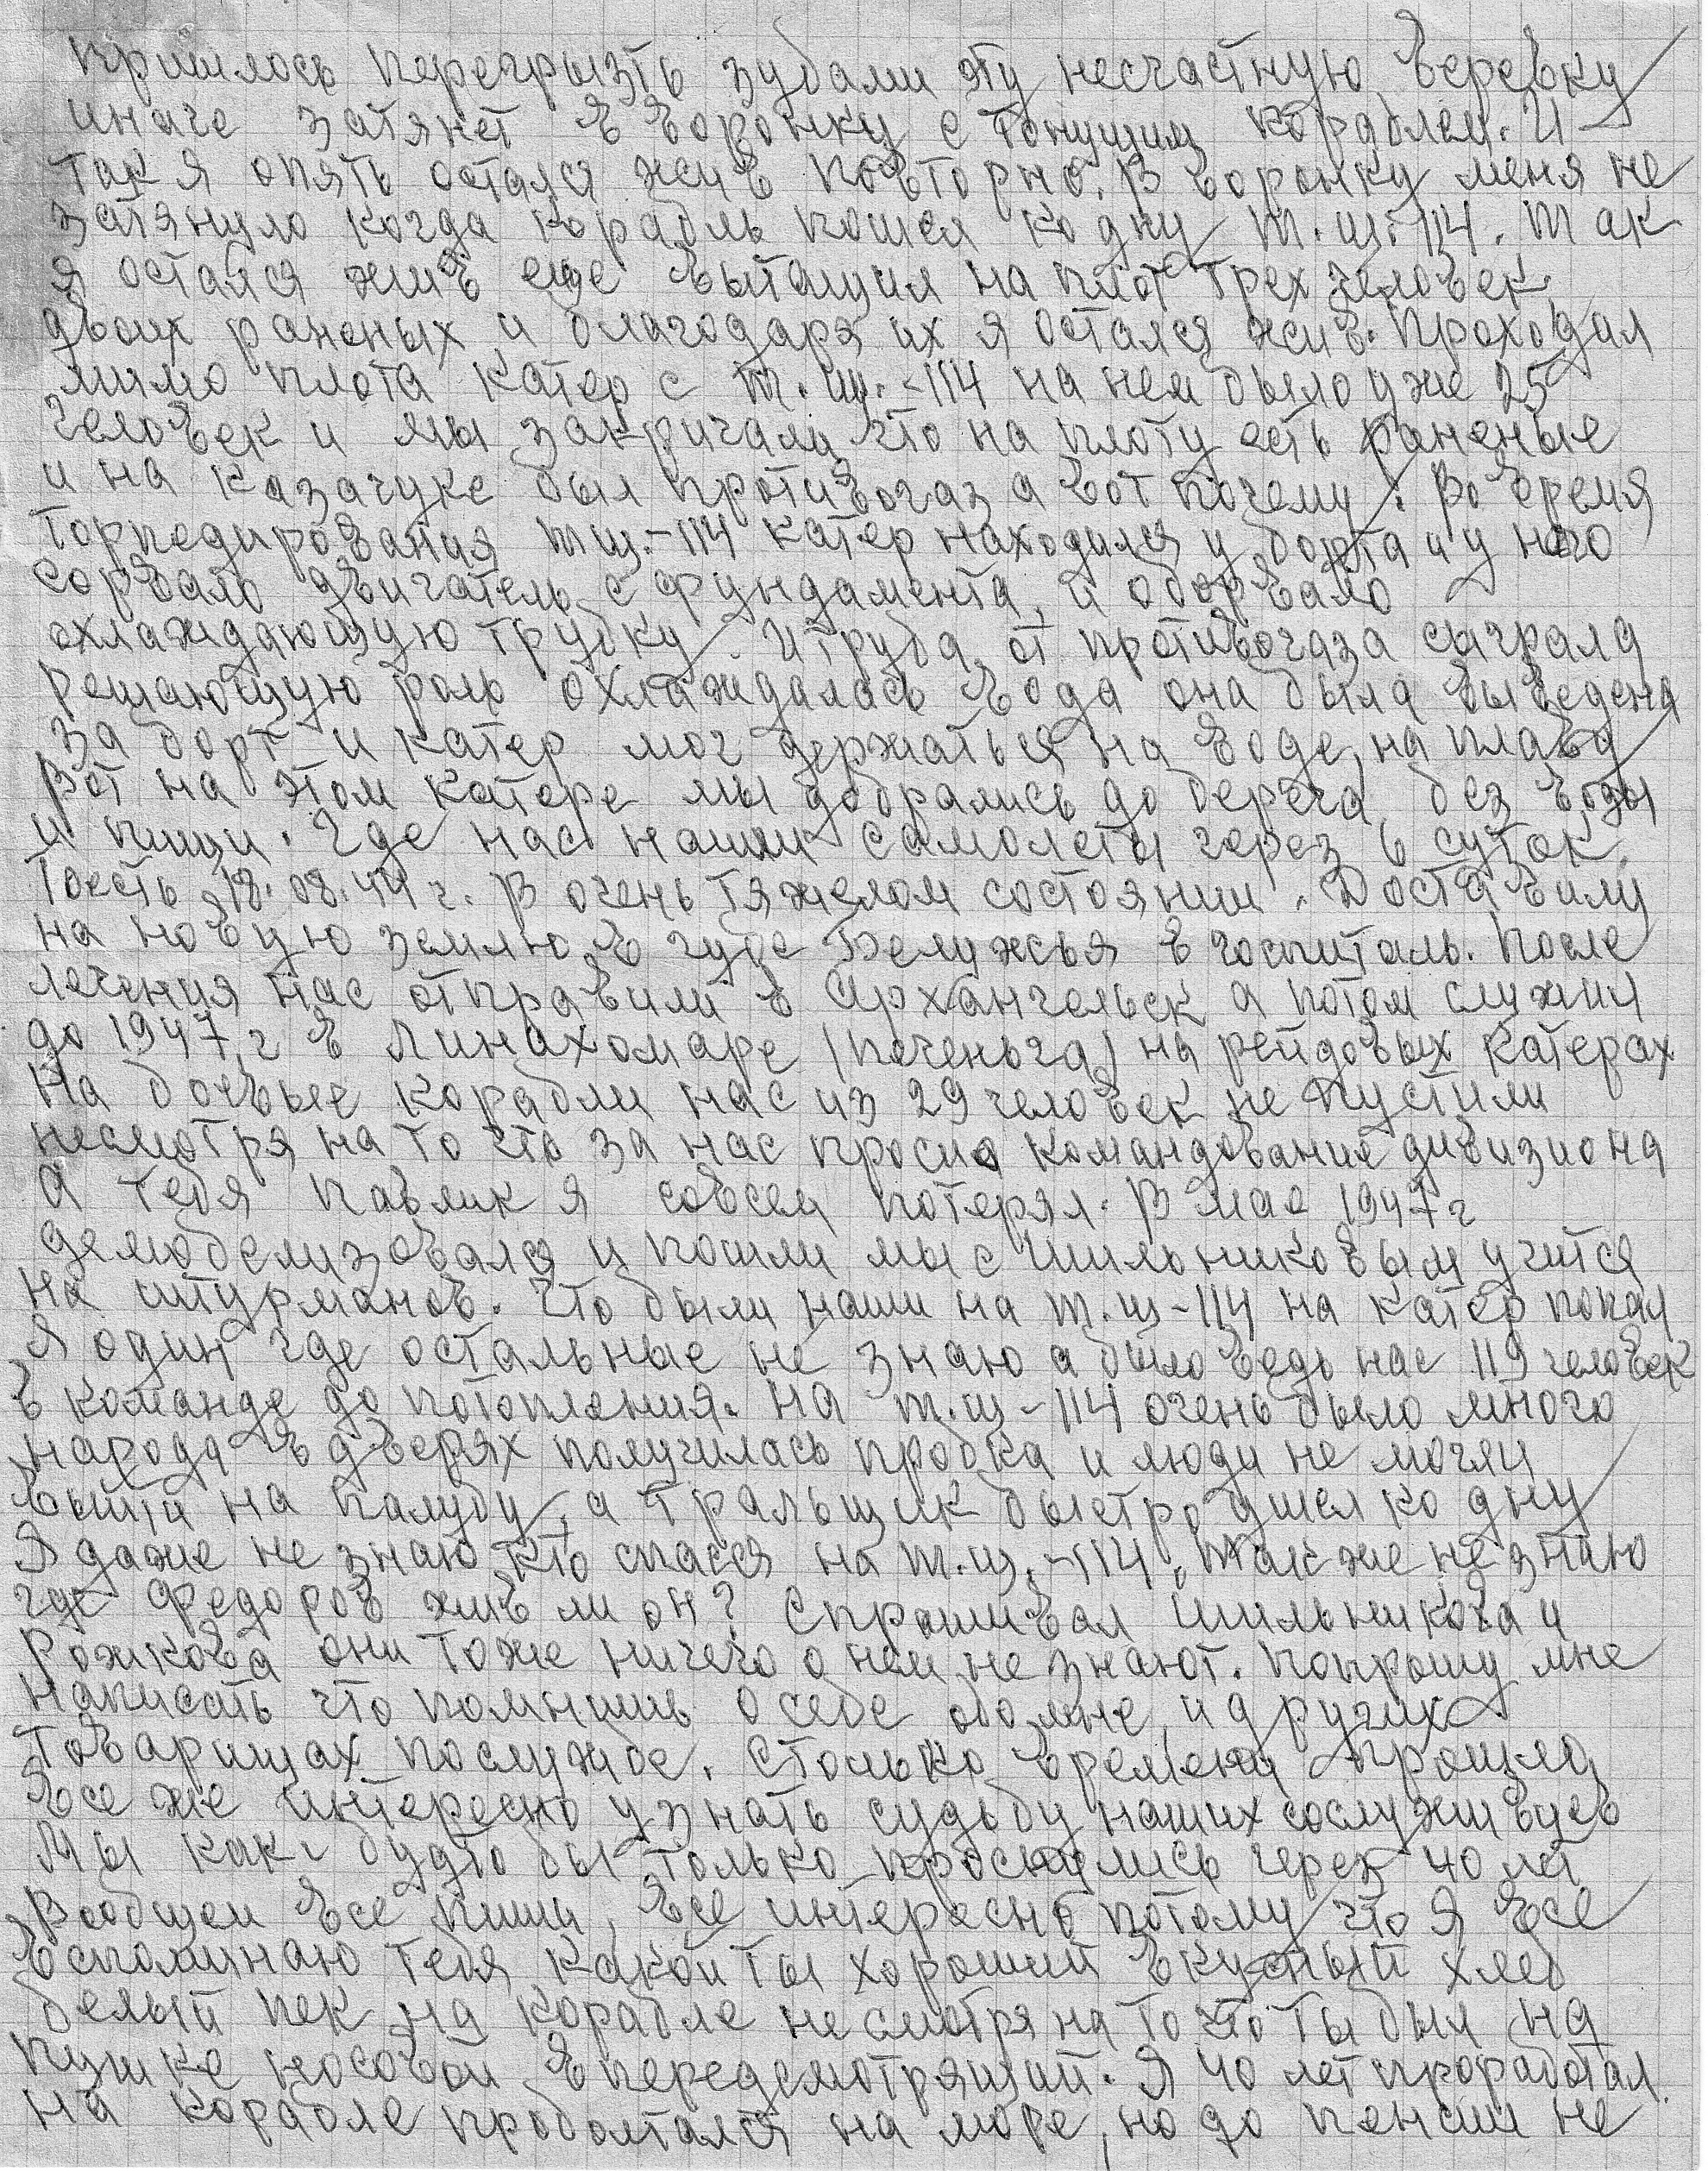 пришлось перегрызть зубами эту несчастную веревку
иначе затянет в воронку с тонущим кораблем. И
так я опять остался жив повторно. В воронку меня не
затянуло когда корабль пошел ко дну т.щ.-114. Так
я остался жив еще вытащил на плот трех человек.
двоих раненых и благодаря их я остался жив. Проходил
мимо плота катер с т.щ.-114 на нем было уже 25
человек и мы закричали что на плоту есть раненые
и на казачуке был противогаз а вот почему. Во время
торпедирования тщ.-114 катер находился у борта и у него
сорвало двигатель с фундамента, и оборвало
охлаждающую трубку. И труба от противогаза сыграла
решающую роль охлаждалась вода она была выведена
за борт и катер мог держаться на воде, на плаву
Вот на этом катере мы добрались до берега, без воды
и пищи. Где нас нашли самолеты через 6 суток.
Тоесть 18.08.44 г. В очень тяжелом состоянии. Доставили
на новую землю в губе Белужья в госпиталь. После
лечения нас отправили в Архангельск а потом служил
до 1947 г в Линахомаре (печеньга) на рейдовых катерах
На боевые корабли нас из 29 человек не пустили
несмотря на то что за нас просило командование дивизиона
А тебя Павлик я совсем потерял. В мае 1947 г
демобелизовался и пошли мы с Шильниковым учится
на штурманов. Что были наши на т.щ-114 на катер попал
я один где остальные не знаю а было ведь нас 119 человек
в команде до потопления. На т.щ-114 очень было много
народа в дверях получилась пробка и люди не могли
выйти на палубу, а тральщик быстро ушел ко дну
Я даже не знаю кто спасся на т.щ.-114. Так же не знаю
где Федоров жив ли он? Спрашивал Шильникова и
Рожкова они тоже ничего о нем не знают. Попрошу мне
написать что помнишь о себе обо мне, и других
товарищах по службе. Столько времени прошло
все же интересно узнать судьбу наших сослуживцев
Мы как будто бы только проснулись через 40 лет
Вообщем все пиши, все интересно потому что я все
вспоминаю тебя, какой ты хороший вкусный хлеб
белый пек на корабле не смотря на то что ты был на
пушке носовой впередсмотрящий. Я 40 лет проработал
на корабле проболтался на море, но до пенсии не